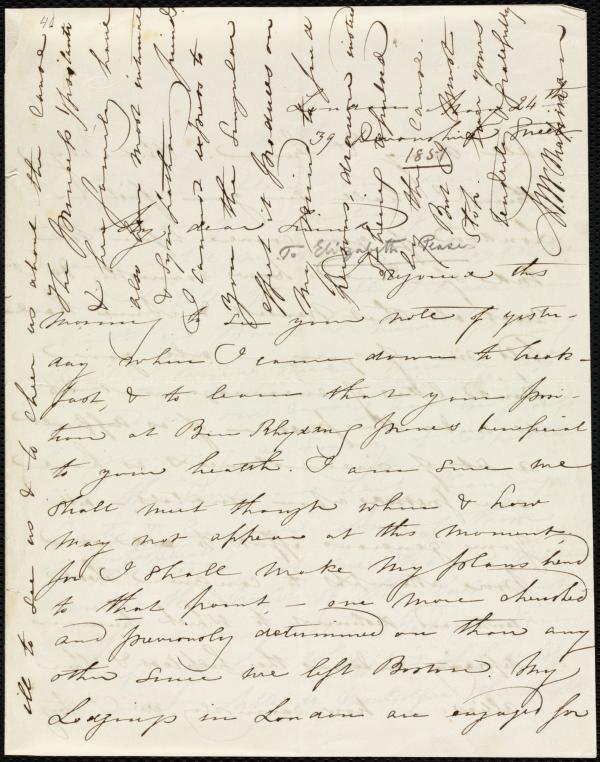 41
London Aug. 24th
39 Devonshire Street
1851
My dear Friend
To Elizabeth Pease
Rejoiced this
morning to see your note of yester-
day when I came down to break-
fast, & to learn that your posi-
tion at Ben Rhydding proves beneficial
to your health. I am sure we
shall meet though when & how
may not appear at this moment,
for I shall make my plans bend
to that point, — one more cherished
and previously determined on than any
other since we left Boston. My
Lodgings in London are engaged for
ill to see us & to cheer us about the cause
The
& her family have
also been most
& sympathizing
I cannot express to
you the singular
effect it produces on
my mind to find
persons,
of being
in the cause.
But I must
stop. Ever yours
tenderly & gratefully
M W Chapman